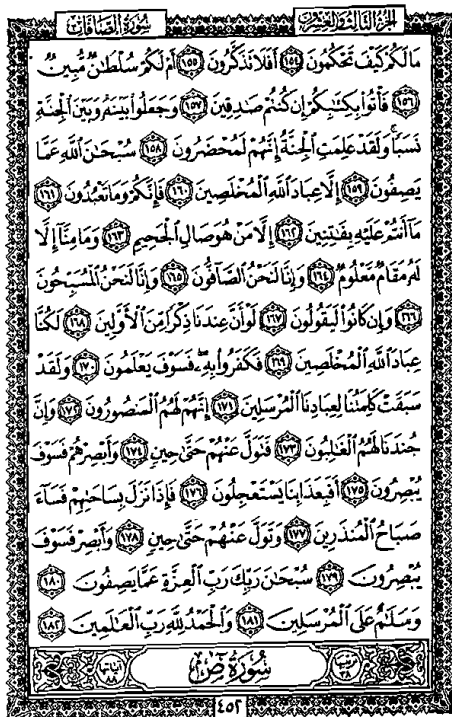 الجزء الثالث والعشرون سورة الصافات
مَا لَكُمْ كَيْفَ تَحْكُمُونَ ١٥٤ أَفَلَا تَذَكَّرُونَ ١٥٥ أَمْ لَكُمْ سُلْطَانٌ مُّبِينٌ
١٥٦ فَأْتُوا بِكِتَابِكُمْ إِن كُنتُمْ صَادِقِينَ ١٥٧ وَجَعَلُوا بَيْنَهُ وَبَيْنَ الْجِنَّةِ
نَسَبًا وَلَقَدْ عَلِمَتِ الْجِنَّةُ إِنَّهُمْ لَمُحْضَرُونَ ١٥٨ سُبْحَانَ اللَّهِ عَمَّا
يَصِفُونَ ١٥٩ إِلَّا عِبَادَ اللَّهِ الْمُخْلَصِينَ ١٦٠ فَإِنَّكُمْ وَمَا تَعْبُدُونَ ١٦١
مَا أَنتُمْ عَلَيْهِ بِفَاتِنِينَ ١٦٢ إِلَّا مَنْ هُوَ صَالِ الْجَحِيمِ ١٦٣ وَمَا مِنَّا إِلَّا
لَهُ مَقَامٌ مَّعْلُومٌ ١٦٤ وَإِنَّا لَنَحْنُ الصَّافُّونَ ١٦٥ وَإِنَّا لَنَحْنُ الْمُسَبِّحُونَ
١٦٦ وَإِن كَانُوا لَيَقُولُونَ ١٦٧ لَوْ أَنَّ عِندَنَا ذِكْرًا مِّنَ الْأَوَّلِينَ ١٦٨ لَكُنَّا
عِبَادَ اللَّهِ الْمُخْلَصِينَ ١٦٩ فَكَفَرُوا بِهِ فَسَوْفَ يَعْلَمُونَ ١٧٠ وَلَقَدْ
سَبَقَتْ كَلِمَتُنَا لِعِبَادِنَا الْمُرْسَلِينَ ١٧١ إِنَّهُمْ لَهُمُ الْمَنصُورُونَ ١٧٢ وَإِنَّ
جُندَنَا لَهُمُ الْغَالِبُونَ ١٧٣ فَتَوَلَّ عَنْهُمْ حَتَّىٰ حِينٍ ١٧٤ وَأَبْصِرْهُمْ فَسَوْفَ
يُبْصِرُونَ ١٧٥ أَفَبِعَذَابِنَا يَسْتَعْجِلُونَ ١٧٦ فَإِذَا نَزَلَ بِسَاحَتِهِمْ فَسَاءَ
صَبَاحُ الْمُنذَرِينَ ١٧٧ وَتَوَلَّ عَنْهُمْ حَتَّىٰ حِينٍ ١٧٨ وَأَبْصِرْ فَسَوْفَ
يُبْصِرُونَ ١٧٩ سُبْحَانَ رَبِّكَ رَبِّ الْعِزَّةِ عَمَّا يَصِفُونَ ١٨٠
وَسَلَامٌ عَلَى الْمُرْسَلِينَ ١٨١ وَالْحَمْدُ لِلَّهِ رَبِّ الْعَالَمِينَ ١٨٢
ترتيبها ٣٨ سُورَةُ ص آياتها ٨٨
٤٥٢